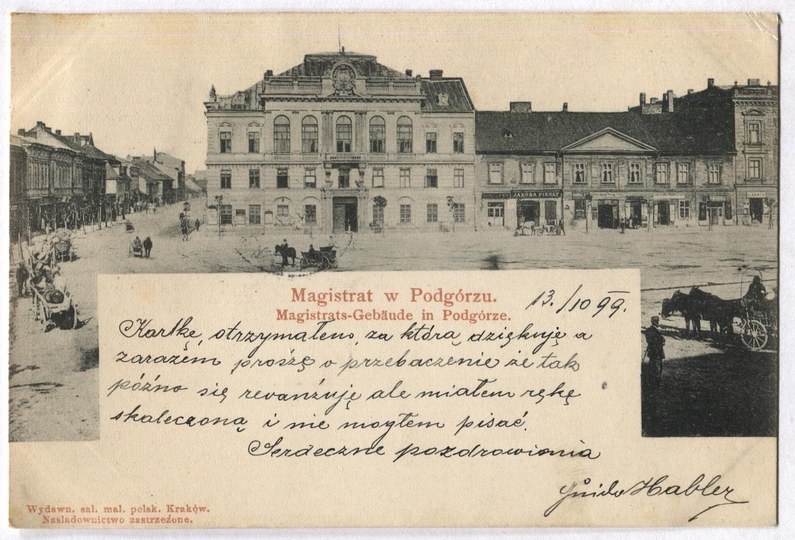 JAKÓBA PIEKŁY
Magistrat w Podgórzu.
Magistrats-Gebäude in Podgórze.
13./10 99.
Kartkę, otrzymałem, za którą dziękuję a
zarazem proszę o przebaczenie że tak
późno się revanżuję ale miałem rękę
skaleczoną i nie mogłem pisać.
Serdeczne pozdrowienia
Guido Habler
Wydawn. sal. mal. polsk. Kraków.
Nasladownictwo zastrzeżone.